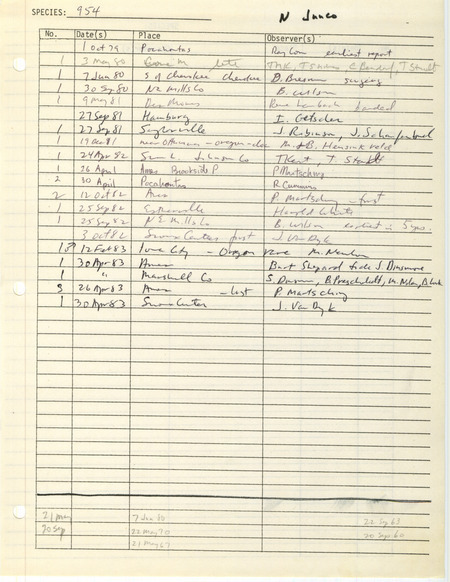 SPECIES: 954 N Junco
No. Date(s) Place Observer(s)
1 Oct 79 Pocahontas Ray Com earliest report
1 3 May 80 late TMK, T Staudt
1 7 Jun 80 S of Cherokee Cherokee D. Bierman singing
1 30 Sep 80 Nc Mills Co B. Wilson
1 9 May 81 Des Moines banded
27 Sep 81 Hamburg I. Getscher
1 27 Sep 81 Saylorville J. Robinson, J. Schaufenbuel
1 19 Dec 81 near Ottumwa - oregon-dac M + B. Hansink
1 24 Apr 82 Johnson Co T Kent, T. Staudt
1 26 April Ames Brookside P P Martsching
2 30 April Pocahontas R Cummins
2 12 Oct 82 Ames P. Martsching - first
1 25 Sep 82 Estherville Harold
1 25 Sep 82 N E Mills Co B. Wilson earliest in 5 yrs.
3 Oct 82 Sioux Center first J. Van Dyk
1♂ 12 Feb 83 Iowa City - Oregon race M. Newlon
1 30 Apr 83 Ames Bart Shepard fide J. Dinsmore
1 " Marshall Co
3 26 Apr 83 Ames - last P Martsching
1 30 Apr 83 Sioux Center J. Van Dyk
21 May 7 Jun 80 22 Sep 63
20 Sep 22 May 70 20 Sep 60
21 May 67